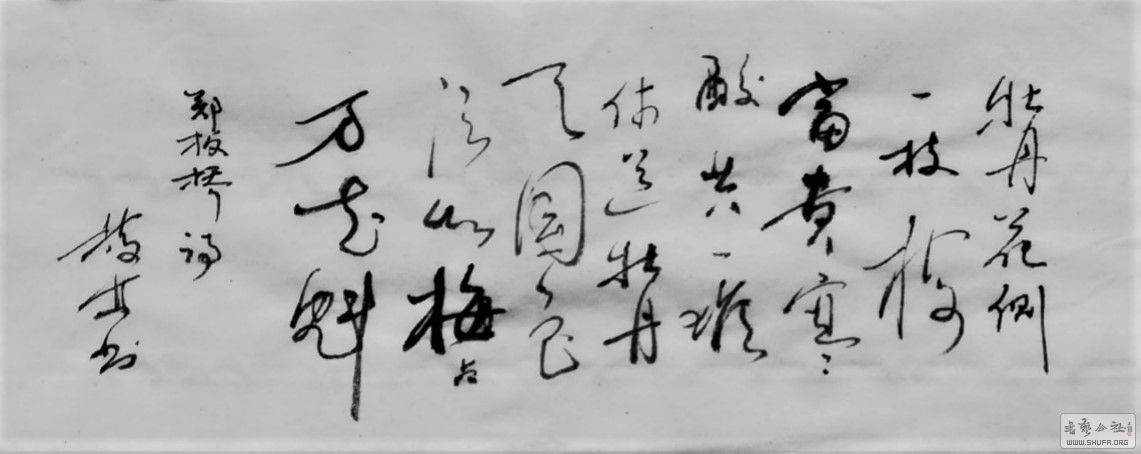 牡丹花侧
一枝梅
富贵寒
酸共一堆
休道牡丹
天国色
须知梅占
万花魁
郑板桥诗
书
书艺公社
WWW.SHUFA.ORG